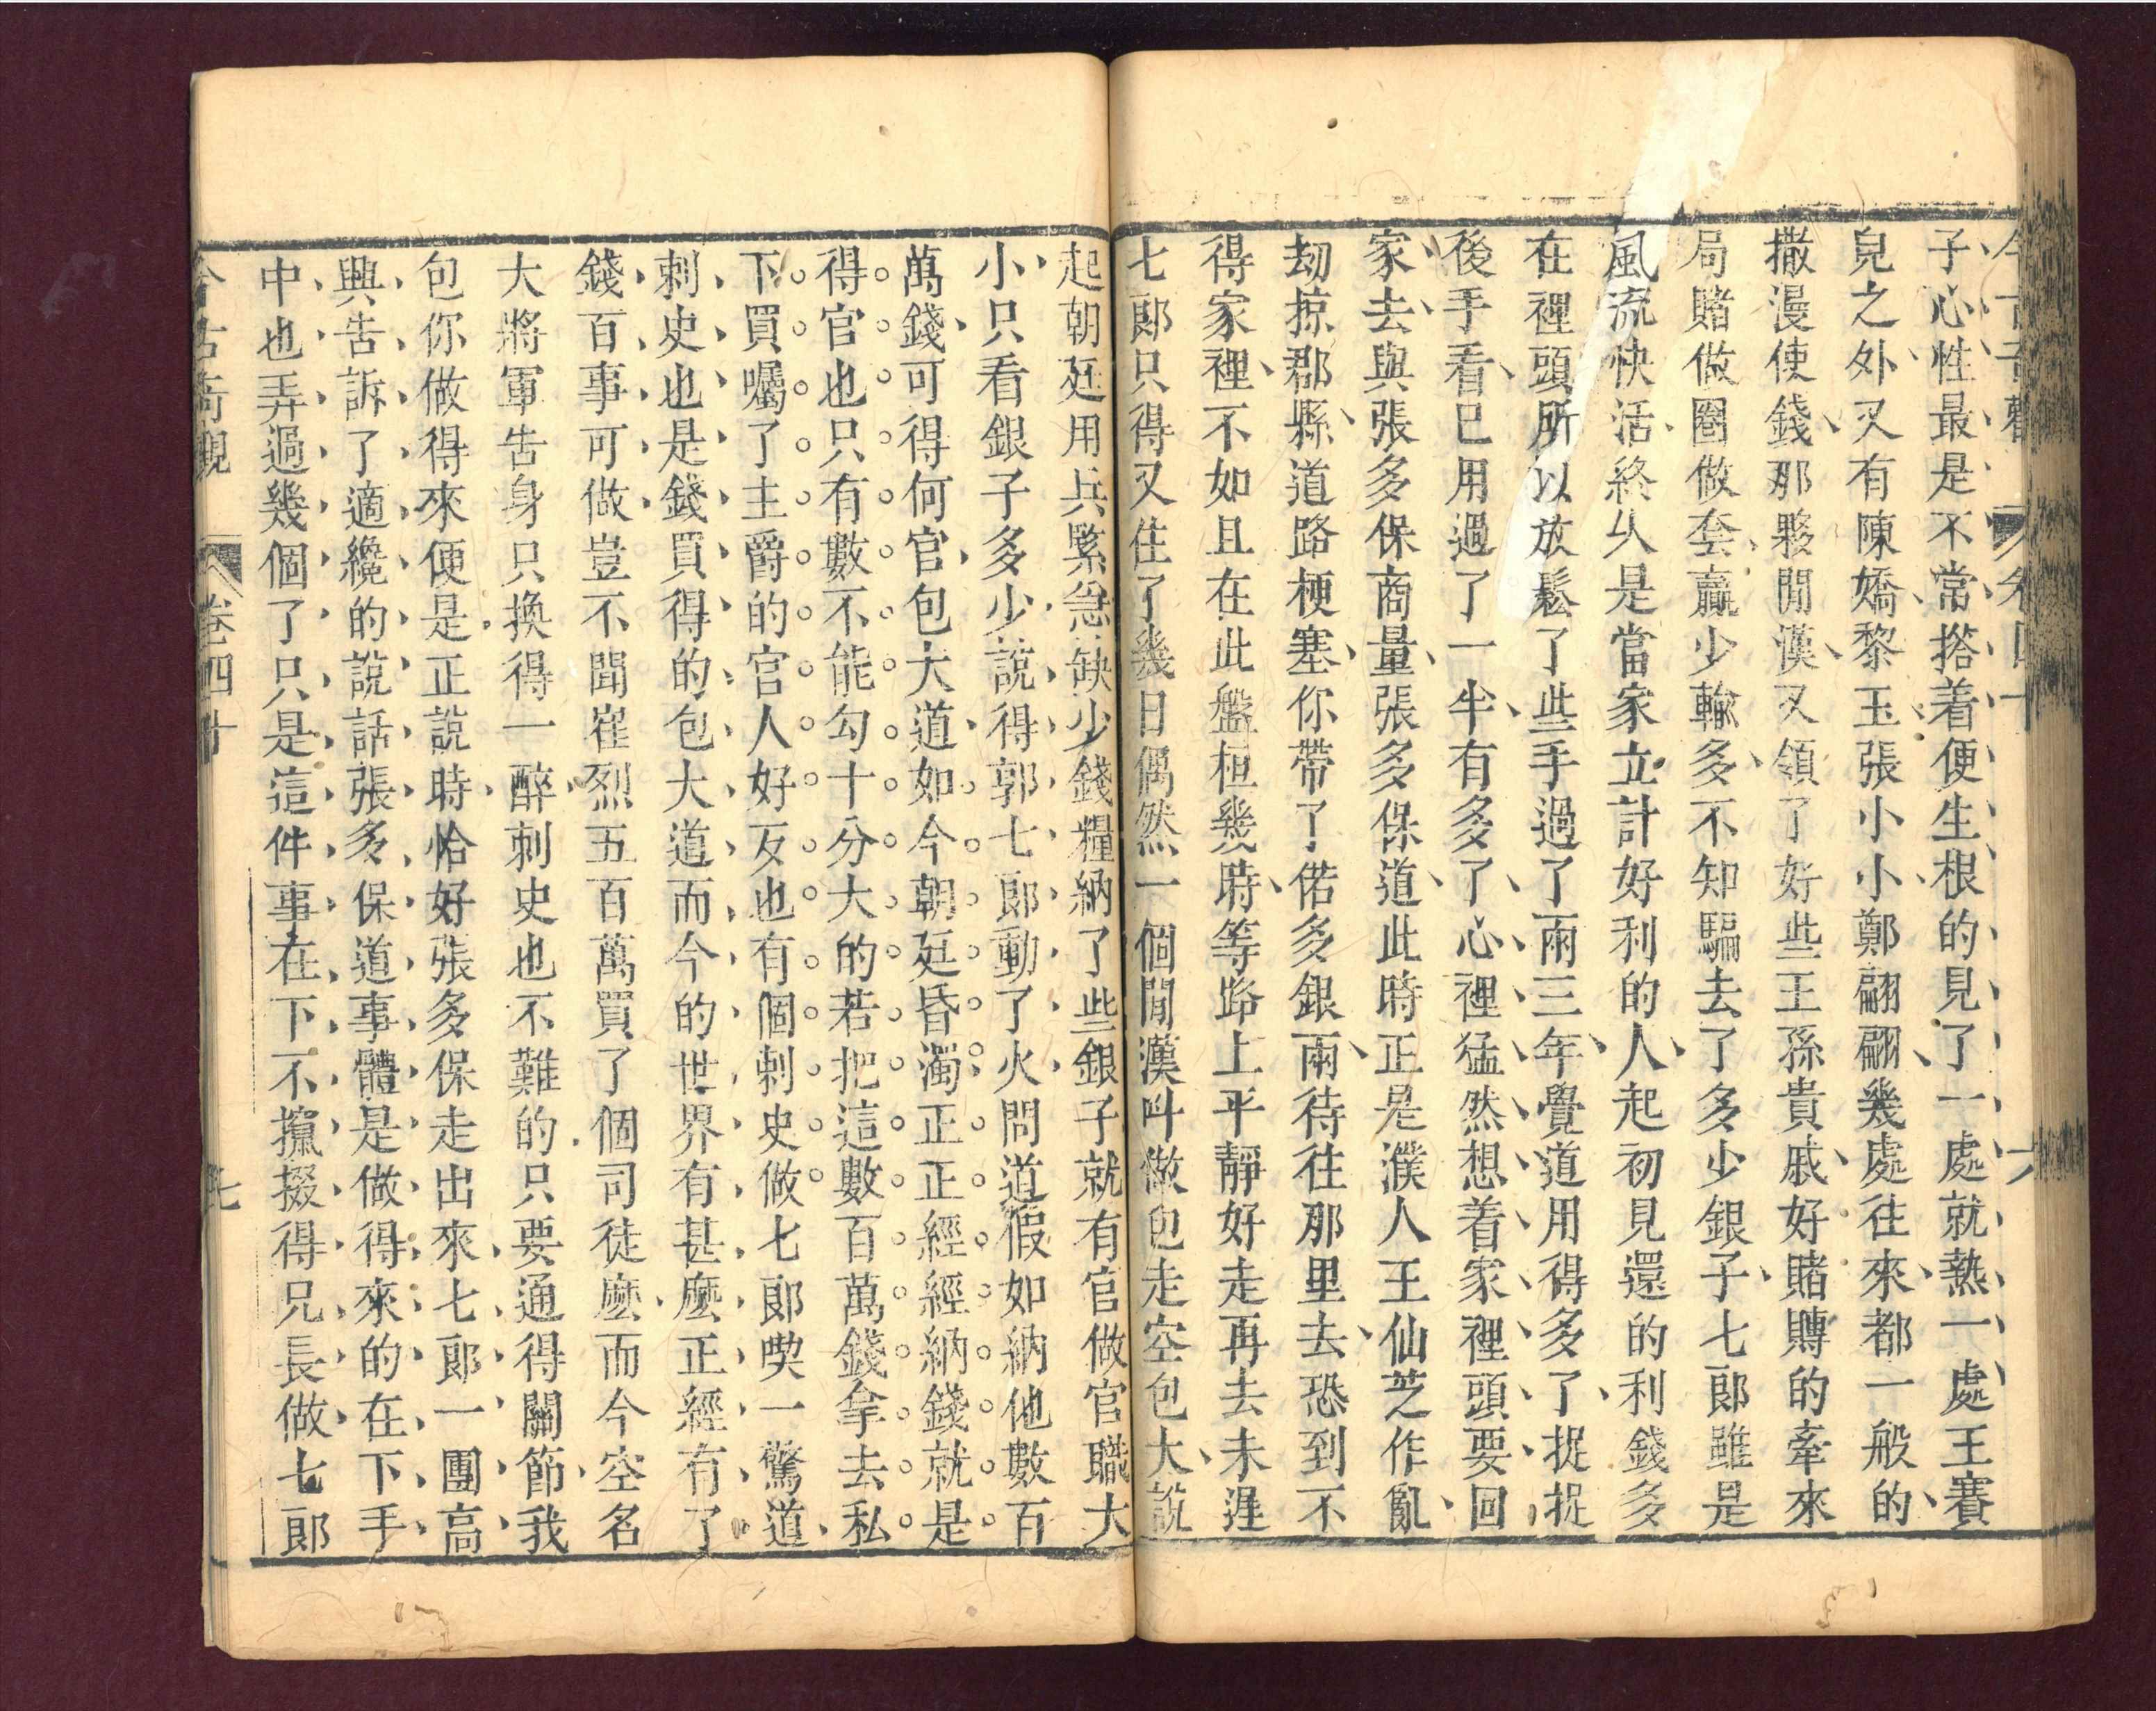 今古奇觀 卷四十 六
子心性最是不常搭着便生根的見了一處就熱一處王賽
兒之外又有陳嬌黎玉張小小鄭翩翩幾處往來都一般的
撒漫使錢那夥閒漢又領了好些王孫貴戚好賭賻的牽來
局賭做圈做套贏少輸多不知騙去了多少銀子七郎雖是
風流快活終久是當家立計好利的人起初見還的利錢多
在裡頭所以放鬆了些手過了兩三年覺道用得多了捉捉
後手看已用過了一半有多了心裡猛然想着家裡頭要回
家去與張多保商量張多保道此時正是濮人王仙芝作亂
劫掠郡縣道路梗塞你帶了偌多銀兩待往那里去恐到不
得家裡不如且在此盤桓幾時等路上平靜好走再去未遲
七郎只得又住了幾日偶然一個閒漢叫做包走空包大說
起朝廷用兵緊急缺少錢糧納了些銀子就有官做官職大
小只看銀子多少說得郭七郎動了火問道假如納他數百
萬錢可得何官包大道如今朝廷昏濁正正經經納錢就是
得官也只有數不能勾十分大的若把這數百萬錢拿去私
下買囑了主爵的官人好歹也有個刺史做七郎喫一驚道
刺史也是錢買得的包大道而今的世界有甚麽正經有了
錢百事可做豈不聞崔烈五百萬買了個司徒麽而今空名
大將軍告身只換得一醉刺史也不難的只要通得關節我
包你做得來便是正說時恰好張多保走出來七郎一團高
興告訴了適纔的說話張多保道事體是做得來的在下手
中也弄過幾個了只是這件事在下不攛掇得兄長做七郎
今古奇觀 卷四十 七